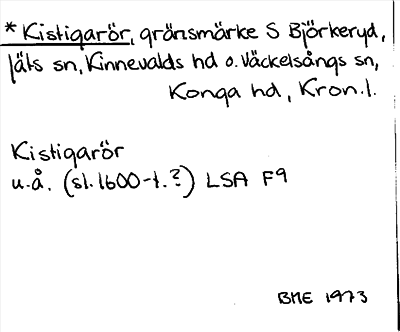 * Kistigarör, gränsmärke S Björkeryd,
Jäts sn, Kinnevalds hd o. Väckelsångs sn,
Konga hd, Kron.l.
Kistigarör
u.å. (sl. 1600-t.?) LSA F9
BME 1973